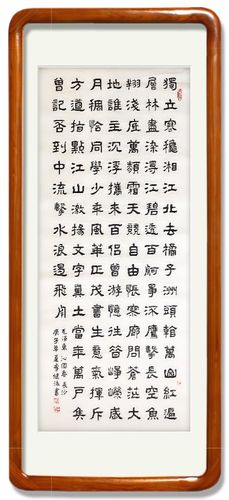 獨立寒穐湘江北去橘子洲頭看萬山紅遍
層林盡染漫江碧透百舸爭流鷹擊長空魚
翔淺底萬類霜天競自由悵寥廓問蒼茫大
地誰主沉浮攜來百侶曾遊憶往昔崢嶸歲
月稠恰同學少年風華正茂書生意氣揮斥
方遒指點江山激揚文字糞土當年萬戶矦
曾記否到中流擊水浪遏飛舟
毛澤東沁園春長沙
庚子年夏書